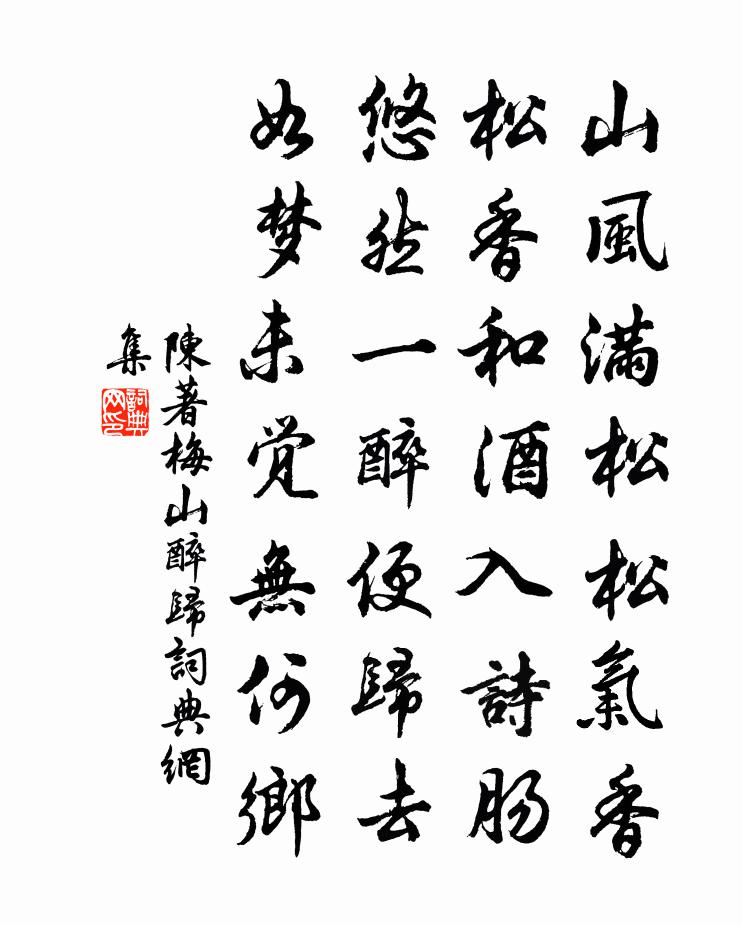 山風滿松松氣香
松香和酒入詩肠
悠然一醉便歸去
如梦未觉無何鄉
陳著梅山醉歸詞典網
集
詞典网印